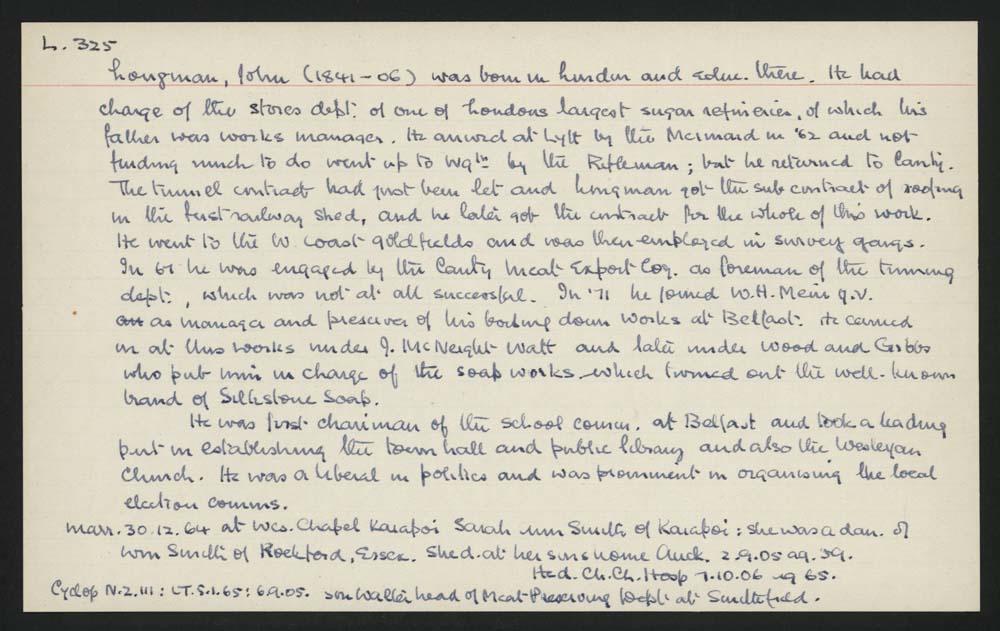 L. 325
Longman, John (1841-06) was born in London and educ. there. He had
charge of the stores dept. of one of Londons largest sugar refineries, of which his
father was works manager. He arrived at Lytt by the Mermaid in '62 and not
finding much to do went up to Wgtn by the Rifleman; but he returned to Canty.
The tunnel contract had just been let and Longman got the sub contract of roofing
in the first railway shed, and he later got the contract for the whole of this work.
He went to the W. Coast goldfields and was then employed in survey gangs.
In 67 he was engaged by the Canty Meat Export Coy. as foreman of the tinning
dept., which was not at all successful. In '71 he joined W.H. Mein q.v.
as manager and preserver of his boiling down works at Belfast. He carried
on at this works under J. McNeight Watt and later under Wood and Gibbs
who put him in charge of the soap works which turned out the well-known
brand of Silkstone Soap.
He was first chairman of the school comm. at Belfast and took a leading
part in establishing the town hall and public library and also the Wesleyan
Church. He was a liberal in politics and was prominent in organising the local
election comms.
marr. 30.12.64 at Wes. Chapel Kaiapoi Sarah Ann Smith of Kaiapoi: she was a dau. of
Wm Smith of Rochford, Essex. She d. at her sons home Auck. 2.9.05 ag. 59.
He d. Ch.Ch. Hosp 7.10.06 ag 65.
Cyclop N.Z. III: LT. 5.1.65: 6.9.05. son Walter head of Meat Preserving Dept at Smithfield.